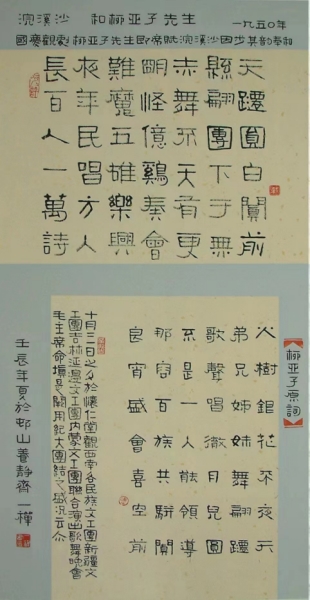 浣溪沙 和柳亚子先生 一九五〇年
國慶觀劇柳亚子先生即席赋浣溪沙因步其韵奉和
長夜難朙赤縣天
百年魔怪舞翩蹮
人民五億不團圓
一唱雄鷄天下白
萬方樂奏有于闐
詩人興會更無前
柳亚子原詞
火樹銀花不夜天
弟兄姊妹舞翩蹮
歌聲唱徹月兒圓
不是一人能領導
那容百族共駢闐
良宵盛會喜空前
十月三日之夕於懷仁堂觀西南各民族文工團新疆文
工團吉林延邊文工團内蒙文工團聯合演出歌舞晚會
毛主席命填是闋用紀大團結之盛况云尔
壬辰年夏於邨山養静齋一禅